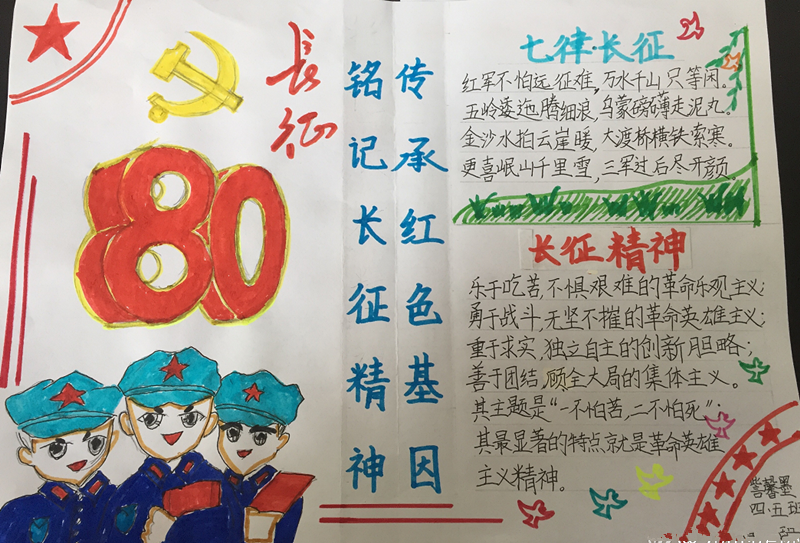 长征
80
铭记长征精神
传承红色基因
七律长征
红军不怕远征难，万水千山只等闲。
五岭逶迤腾细浪，乌蒙磅礴走泥丸。
金沙水拍云崖暖，大渡桥横铁索寒。
更喜岷山千里雪，三军过后尽开颜。
长征精神
乐于吃苦，不惧艰难的革命乐观主义；
勇于战斗，无坚不摧的革命英雄主义；
重于求实，独立自主的创新胆略；
善于团结，顾全大局的集体主义。
其主题是“一不怕苦，二不怕死”；
其最显著的特点就是革命英雄
主义精神。
四.五班